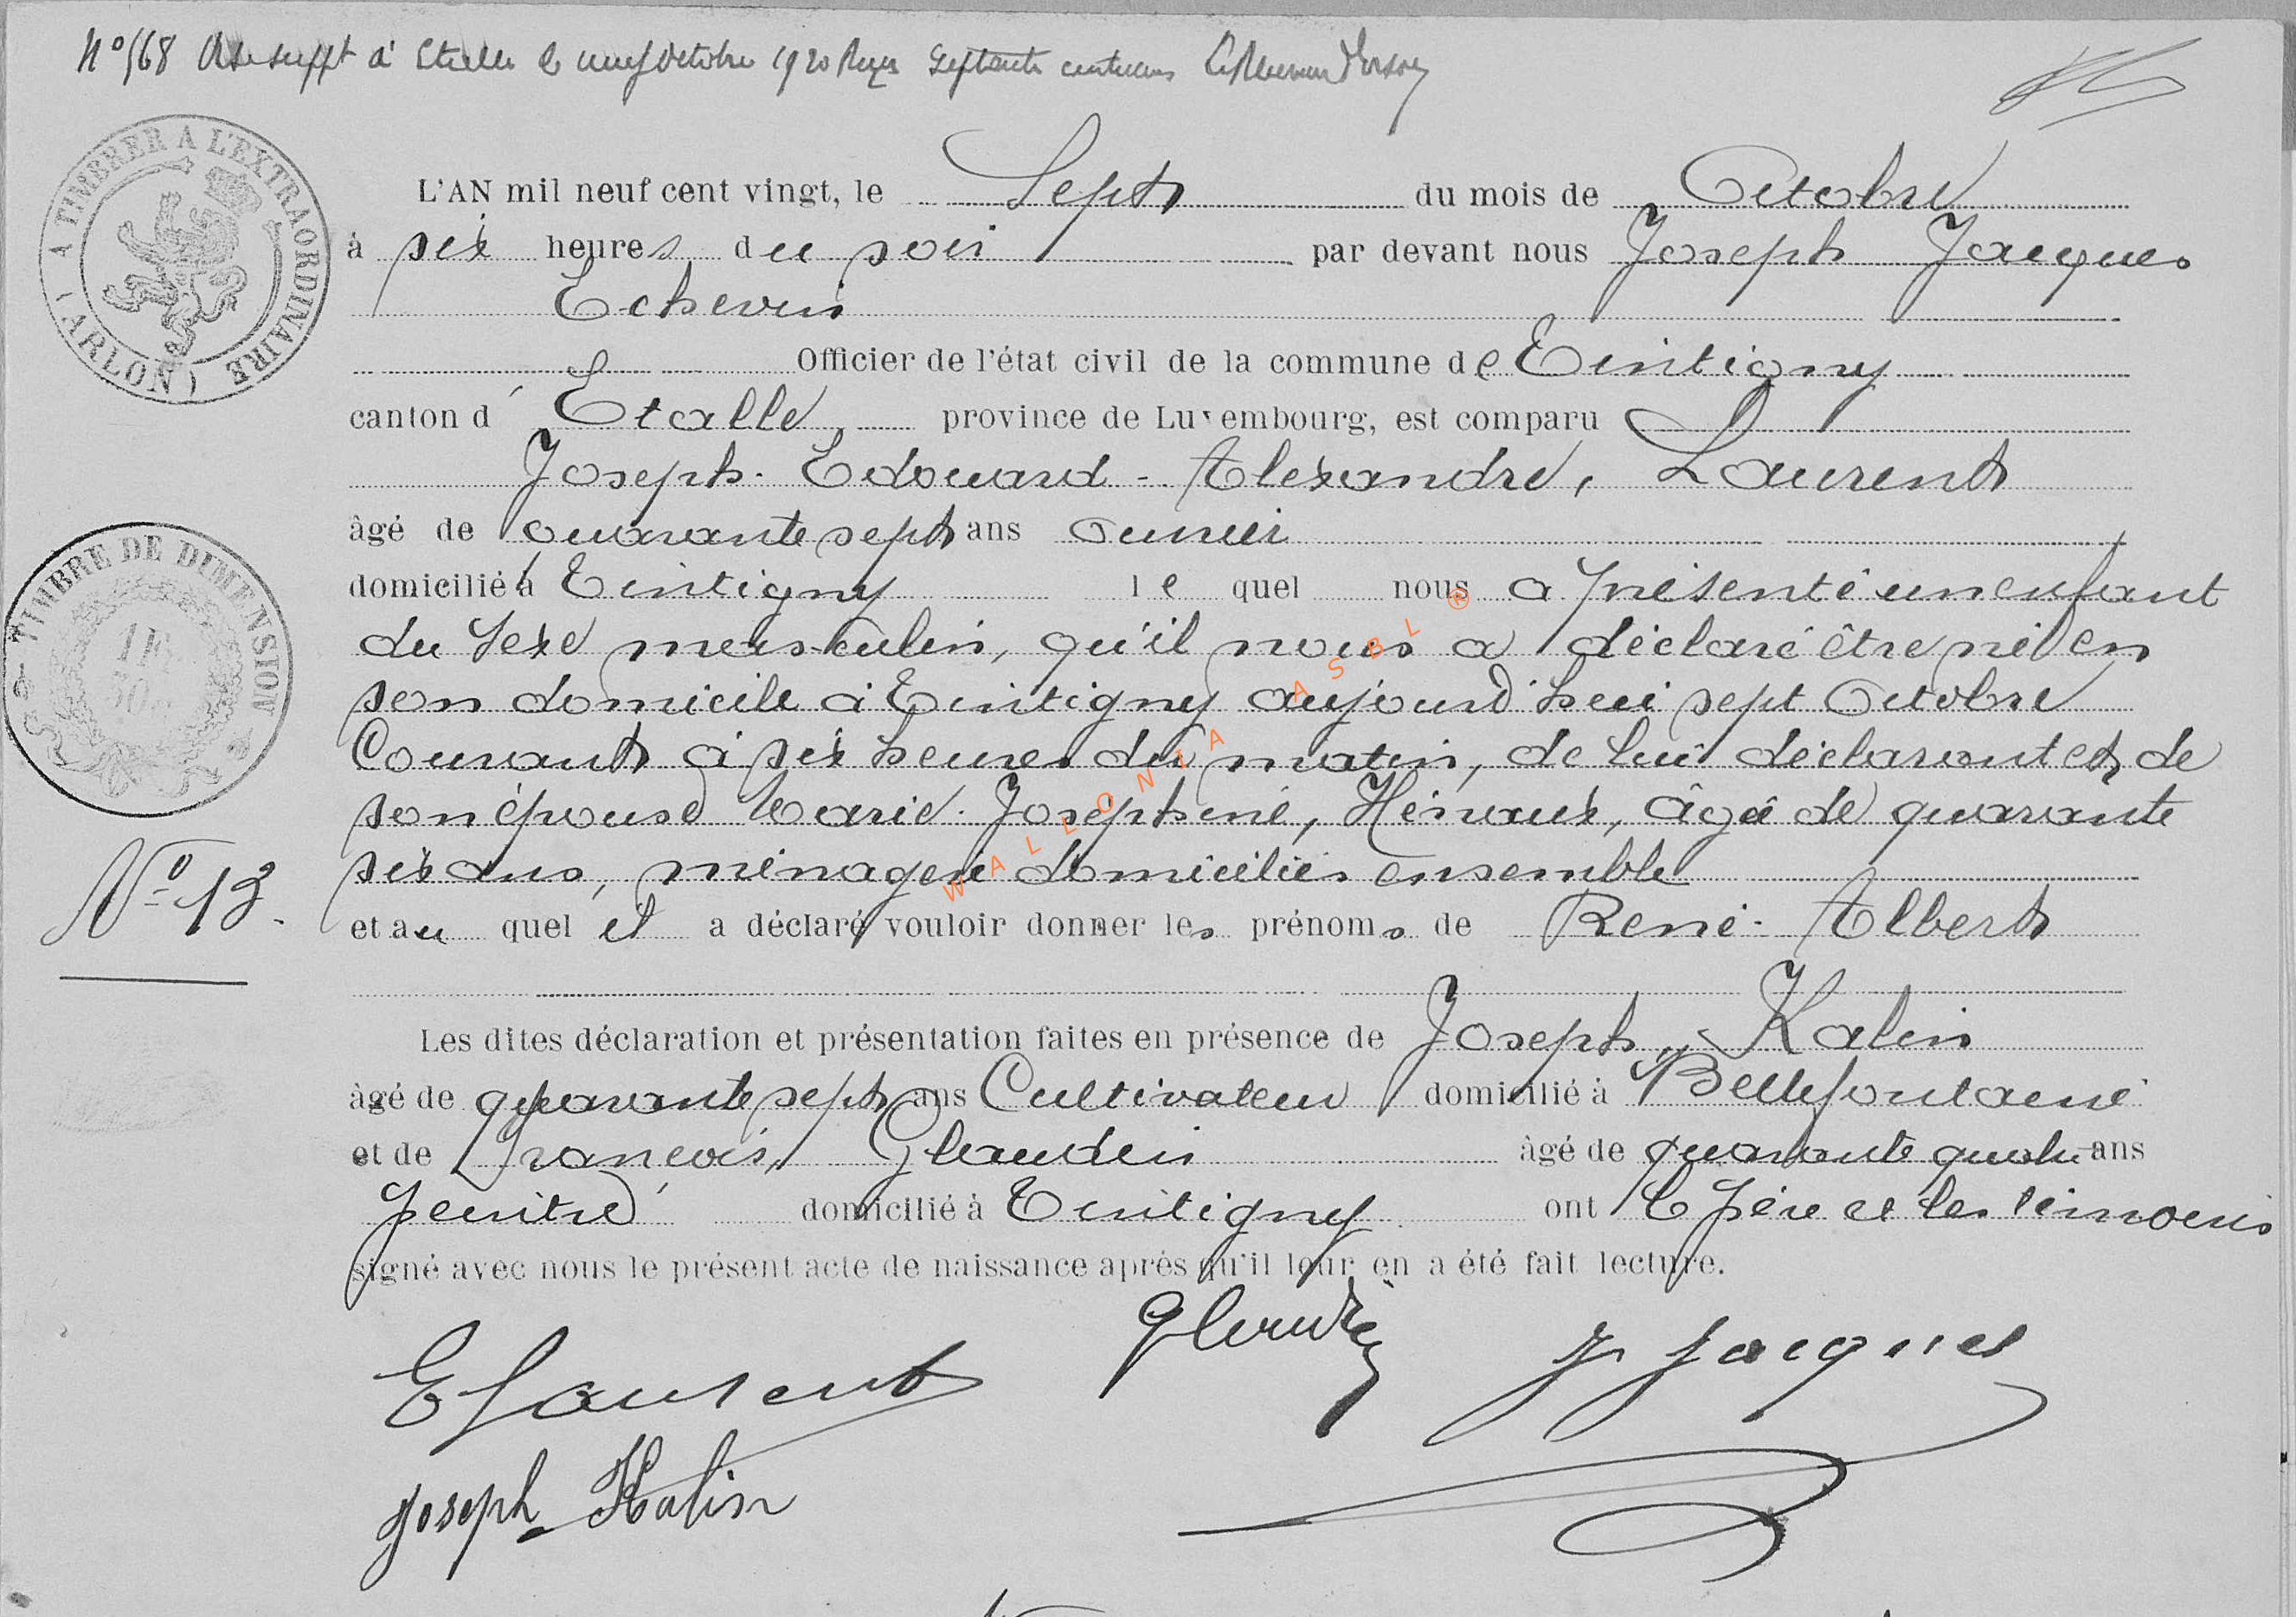 N° 568 Visé suppt à Etalle le neuf Octobre 1920 Reçu septante centimes Le Receveur
A TIMBRER A L'EXTRAORDINAIRE (ARLON)
L'AN mil neuf cent vingt, le Sept du mois de Octobre
à six heures du soir par devant nous Joseph Jacques
Echevin
Officier de l'état civil de la commune de Tintigny
canton d'Etalle province de Luxembourg, est comparu
Joseph-Edouard-Alexandre, Laurent
âgé de quarante sept ans
domicilié à Tintigny lequel nous a présenté un enfant
du sexe masculin, qu'il nous a déclaré être né en
son domicile à Tintigny aujourd'hui sept Octobre
Courant à six heures du matin, de lui déclarant et de
son épouse Marie-Joséphine, Hérvaux, âgée de quarante
six ans, ménagère domiciliés ensemble
et au quel il a déclaré vouloir donner les prénoms de René-Albert
Les dites déclaration et présentation faites en présence de Joseph, Kalin
âgé de quarante sept ans Cultivateur domicilié à Bellefontaine
et de François, Glaudin âgé de quarante quatre ans
peintre domicilié à Tintigny ont le père et les témoins
signé avec nous le présent acte de naissance après qu'il leur en a été fait lecture.
TIMBRE DE DIMENSION
1F
50c
N° 13.
WALLONIA ASBL ®
E Laurent
Glaudin
J Jacques
Joseph Kalin